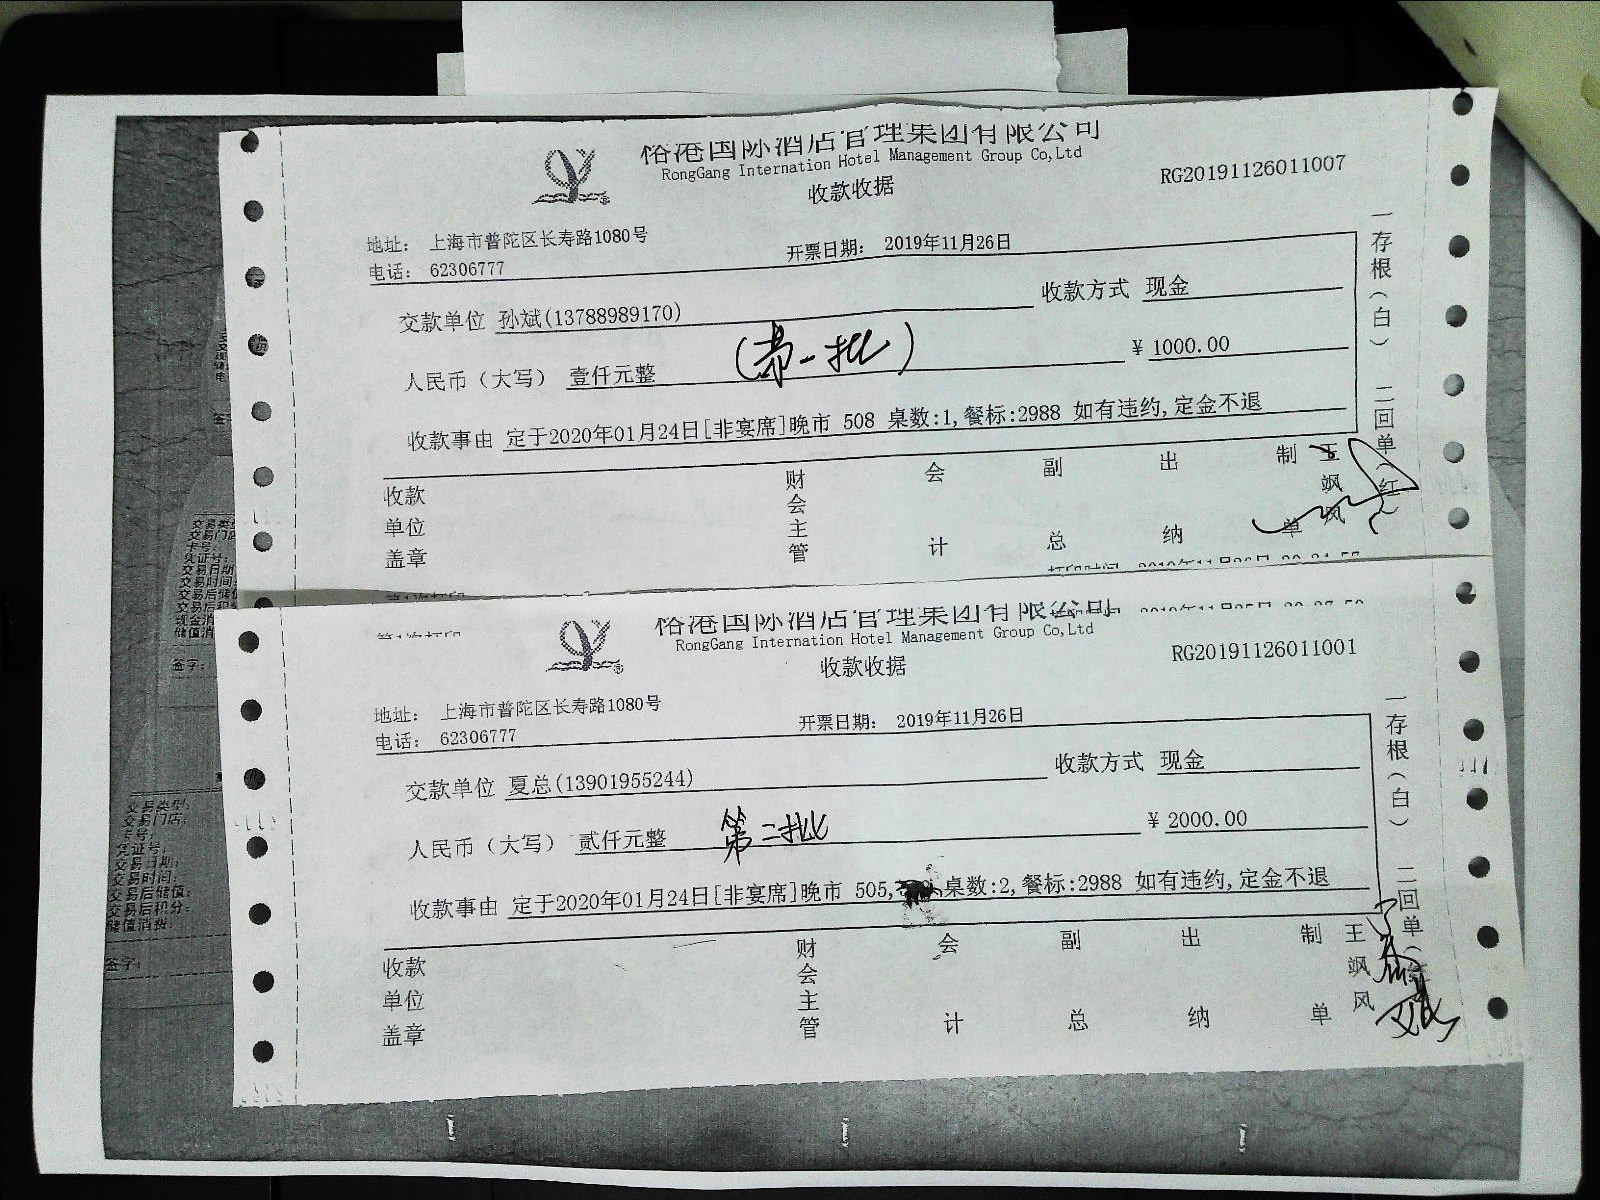 裕港国际酒店管理集团有限公司
RongGang Internation Hotel Management Group Co,Ltd
收款收据
RG20191126011007
地址： 上海市普陀区长寿路1080号
电话： 62306777
开票日期： 2019年11月26日
收款方式 现金
交款单位 孙斌(13788989170)
(第一批)
人民币（大写） 壹仟元整
¥ 1000.00
收款事由 定于2020年01月24日[非宴席]晚市 508 桌数:1,餐标:2988 如有违约,定金不退
收款单位盖章
财会主管
会计
副总
出纳
制单
王飒风
一存根（白） 二回单（红）
裕港国际酒店管理集团有限公司
RongGang Internation Hotel Management Group Co,Ltd
收款收据
RG20191126011001
地址： 上海市普陀区长寿路1080号
电话： 62306777
开票日期： 2019年11月26日
收款方式 现金
交款单位 夏总(13901955244)
第二批
人民币（大写） 贰仟元整
¥ 2000.00
收款事由 定于2020年01月24日[非宴席]晚市 505, 桌数:2,餐标:2988 如有违约,定金不退
收款单位盖章
财会主管
会计
副总
出纳
制单
王飒风
一存根（白） 二回单（红
交易类型:
交易门店:
卡号:
凭证号:
交易日期:
交易时间:
交易后储值:
交易后积分:
储值消费:
签字: